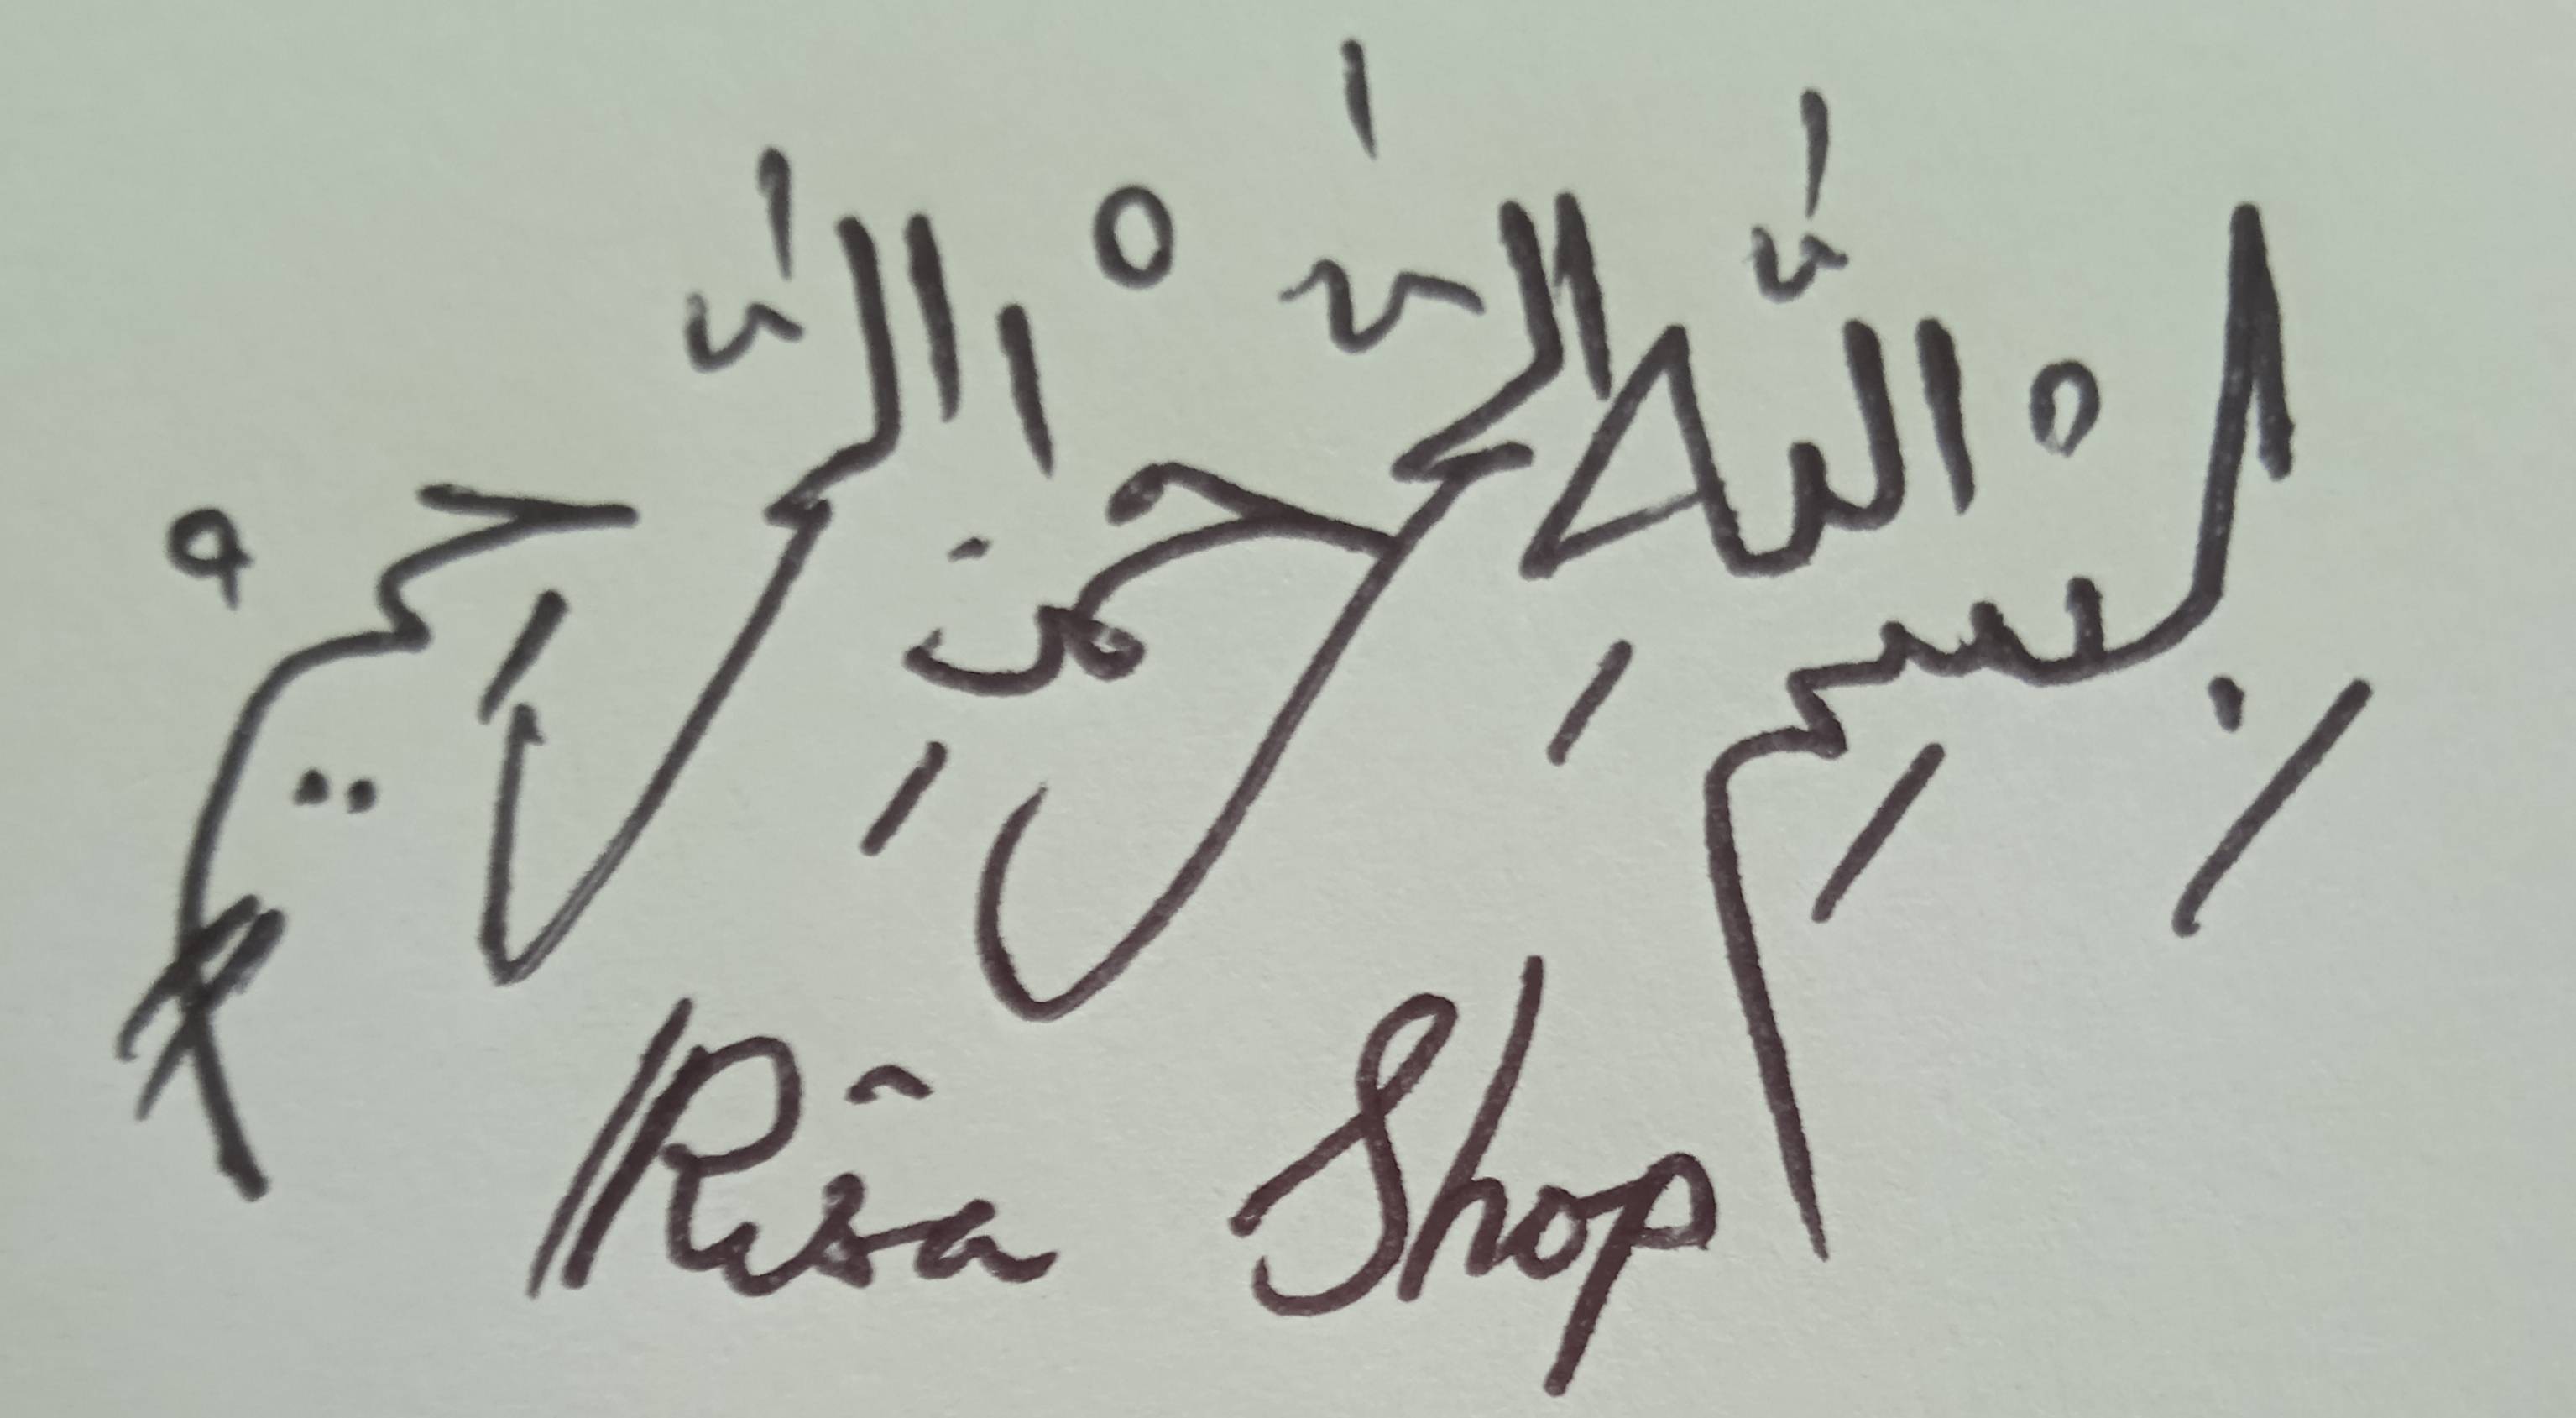 بِسْمِ اللَّهِ الرَّحْمَنِ الرَّحِيمْ
Risa Shop